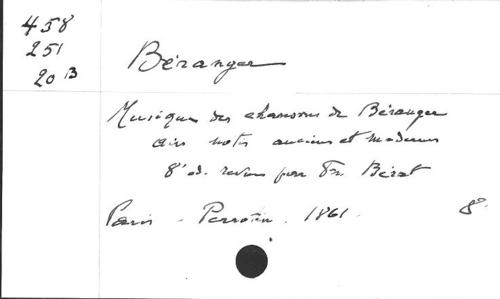 458
251
20 B
Béranger
Musique des chansons de Béranger
airs notés anciens et modernes
8e ed. revue par Fr. Bérat
Paris - Perrotin. 1861. 8°